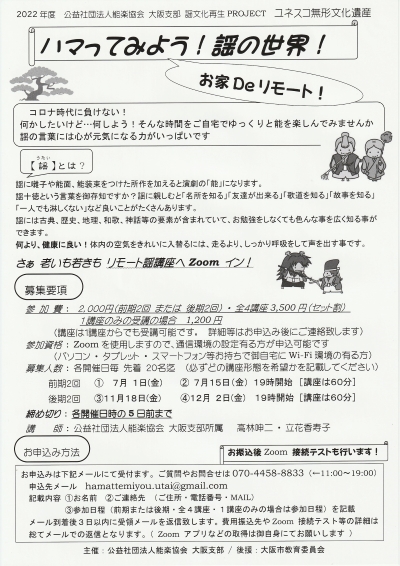 2022年度　公益社団法人能楽協会 大阪支部 謡文化再生 PROJECT　ユネスコ無形文化遺産
ハマってみよう！謡の世界！
お家 De リモート！
コロナ時代に負けない！
何かしたいけど…何しよう！そんな時間をご自宅でゆっくりと能を楽しんでみませんか
謡の言葉には心が元気になる力がいっぱいです
うたい
【 謡 】とは？
謡に囃子や能面、能装束をつけた所作を加えると演劇の「能」になります。
謡十徳という言葉を御存知ですか？謡に親しむと「名所を知る」「友達が出来る」「歌道を知る」「故事を知る」
「一人でも淋しくない」など良いことがたくさんあります。
謡には古典、歴史、地理、和歌、神話等の要素が含まれていて、お勉強をしなくても色んな事を広く知る事が
できます。
何より、健康に良い！体内の空気をきれいに入替るには、走るより、しっかり呼吸をして声を出す事です。
さぁ 老いも若きも リモート謡講座へ Zoom イン！
募集要項
参 加 費： 2,000円(前期2回 または 後期2回)・全4講座 3,500円(セット割)
1講座のみの受講の場合　1,200円
（講座は1講座からでも受講可能です。　詳細等はお申込み後にご連絡致します）
参加資格：Zoomを使用しますので、通信環境の設定有る方が申込可能です
（パソコン・タブレット・スマートフォン等お持ちで御自宅に Wi-Fi 環境の有る方）
募集人数：各開催日毎 先着 20名迄　（必ずどの講座形態を希望かを記載してください）
前期2回　①　7月 1日(金)　②　7月15日(金) 19時開始［講座は60分］
後期2回　③11月18日(金)　④12月 2日(金) 19時開始［講座は60分］
締め切り：各開催日時の5日前まで
講　　師：公益社団法人能楽協会 大阪支部所属　高林呻二・立花香寿子
お申込み方法
お振込後 Zoom 接続テストも行います！
お申込みは下記メールにて受付ます。ご質問やお問合せは 070-4458-8833（←11:00～19:00）
申込先メール　hamattemiyou.utai@gmail.com
記載内容 ①お名前　②ご連絡先　(ご住所・電話番号・MAIL)
③参加日程（前期または後期・全4講座・1講座のみの場合は参加日程）を記載
メール到着後3日以内に受領メールを返信致します。費用振込先や Zoom 接続テスト等の詳細は
総てメールでの返信となります。( Zoom アプリなどの取得は御自身にてお願いします )
主催：公益社団法人能楽協会 大阪支部 / 後援：大阪市教育委員会